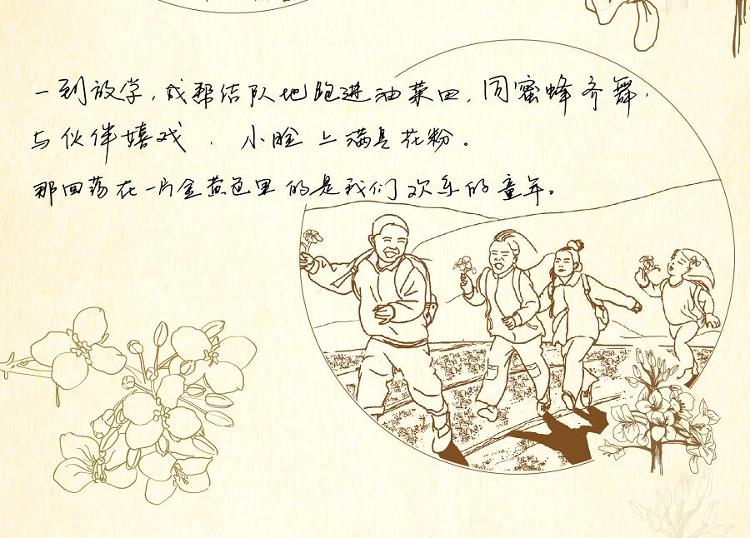 一到放学，成帮结队地跑进油菜田，同蜜蜂齐舞，
与伙伴嬉戏，小脸上满是花粉。
那回荡在一片金黄色里的是我们欢乐的童年。